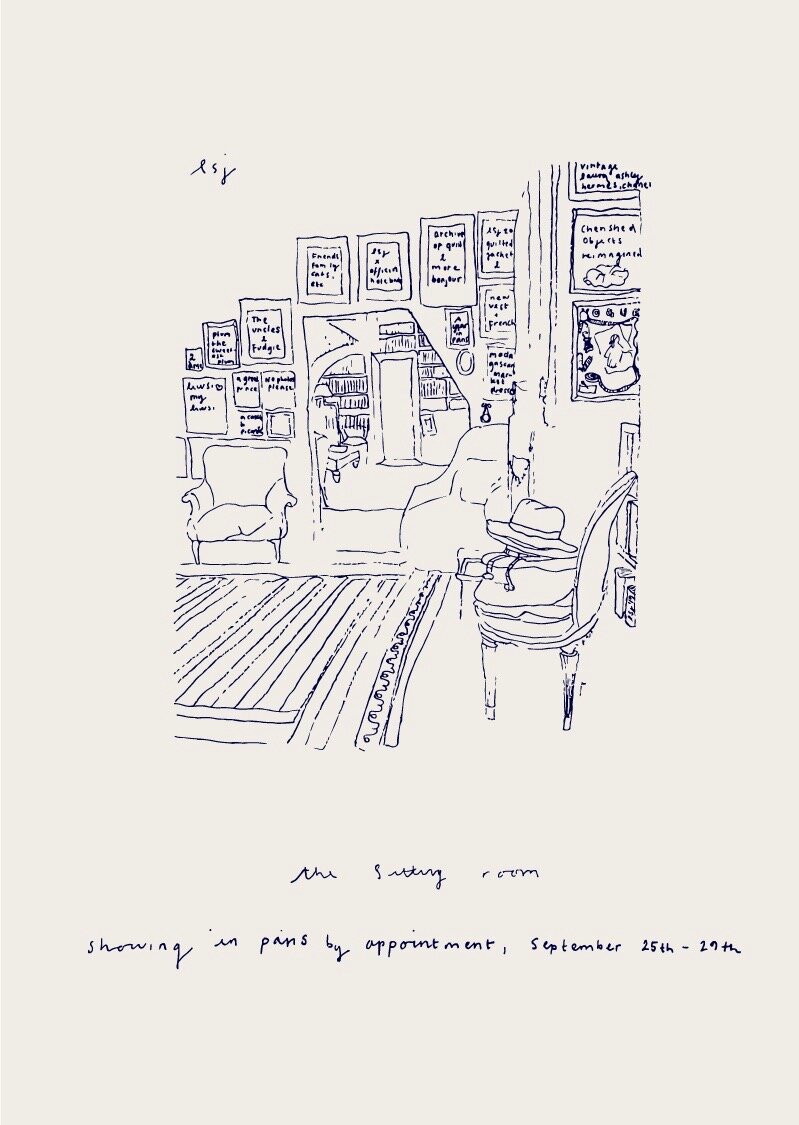 lsj
vintage
laura ashley
hermes, chanel
Cherished
Objects
reimagined
friends
family
cats,
etc
lsj
x
officin
Archive
op quilt
&
more
bonjour
lsj 20
quilted
jacket
new
vest
+
French
A
year
in
paris
The
uncles
&
Fudgie
plum
the
plum
2
my
a great
No photos
please
the sitting room
showing in paris by appointment, September 25th - 29th